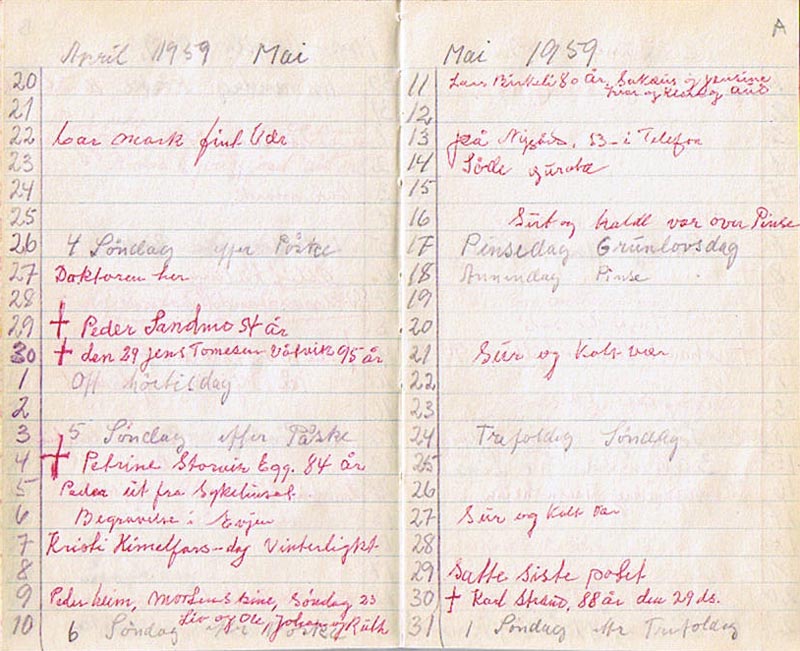 April 1959 Mai
20
21
22 bar mark fint Vær
23
24
25
26 4 Søndag efter Påske
27 Doktoren her
28
29 † Peder Sandmo 84 år
30 † den 29 Jens Tomesen Våtvik 95 år
1 Off höitisdag
2
3 5 Søndag efter Påske
4 † Petrine Storvik Egg. 84 år
5 Peder ut fra Sykehuset.
6 Begravelse i Evjen
7 Kristi Himelfars-dag Vinterligkt
8
9 Peder heim, Mortens kine, Søndag 23
Liv og Ole, Johan og Ruth
10 6 Søndag efter Påske
Mai 1959
A
11 Lars Birkeli 80 år, og
Ivar og og
12
13 på Nygård, 53- i Telefon
14 Sådde
15
16 Surt og kaldt var over Pinse
17 Pinsedag Grunlovsdag
18 Annendag Pinse
19
20
21 Sur og Kalt vær
22
23
24 Trefoldeg Søndag
25
26
27 Sur og Kalt vær
28
29 Satte siste potet
30 † Karl Strand, 88 år den 29 ds.
31 1 Søndag efter Trefoldeg